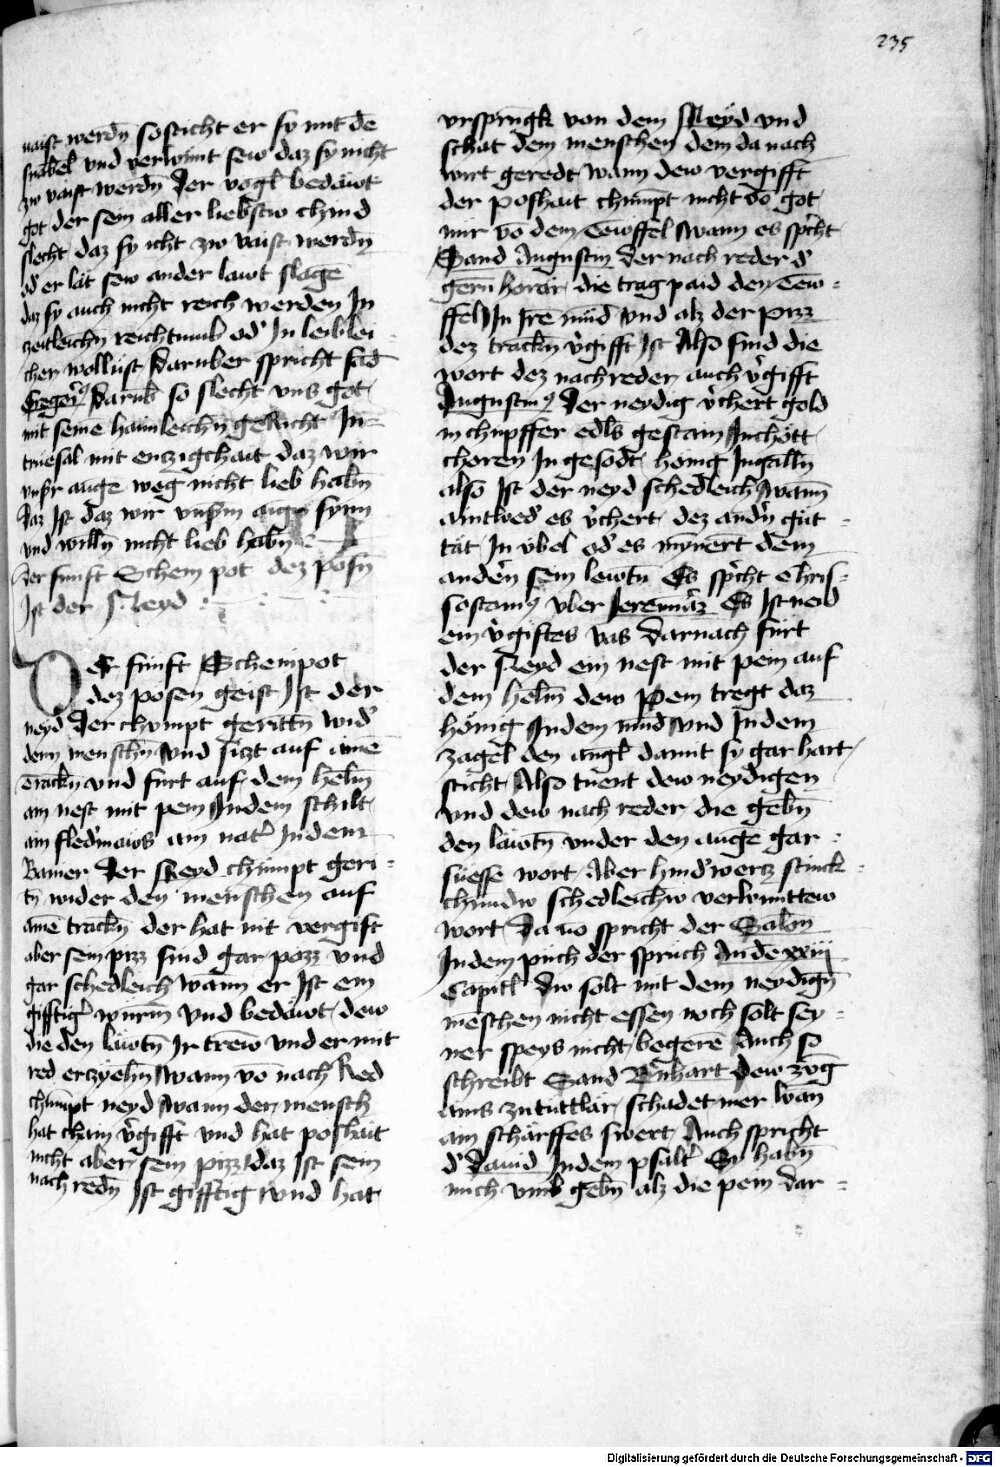 235
vaist werdn̄ so sticht er sy mit dē
snabel vnd verwint sew daz sy nicht
zw vaist werdn̄ Der vogl̄ bedäwt
got der sein aller liebstew chind
slecht daz sy icht zw vaist werdn̄
od' er lät sew ander läwt slagē
daz sy auch nicht reich werden In
zeitleichn̄ reichtumb od' In leiblei=
cher wollust Darüber spricht sād
Gregorī' Darūb so slecht vns got
mit seinē haimleichn̄ gericht In=
truesal mit enczigchait daz wir
vnsr̄ augē weg nicht lieb habn̄
daz Ist daz wir vnsrm̄ augn̄ synn
vnd willn̄ nicht lieb habn̄
Der funft Schem pot dez posn̄
Ist der Neyd
Der funft Schempot
dez posen geist Ist der
neyd Der chumpt geritn̄ wid'
denn menschn̄ vnd siczt auf ainē
Trackn̄ vnd furt auf dem helm̄
am nest mit pem Indem schilt
am fledmaws am natr̄ Indem
Banier Der Neyd chümpt geri=
tn̄ wider den menschen auf
ainē trackn̄ der hat nit vergift
aber sein pizz sind gar pözz vnd
gar schedleich wann er Ist ein
gifftig' würm̄ vnd bedäwt dew
die den läwtn̄ Ir trew vnd er mit
red erzyehn̄ wann vō nach Red
chumpt neyd wann der mensch
hat chain v'gifft vnd hat poshait
nicht aber sein pizz daz Ist sein
nach redn̄ Ist gifftig vnd hat
vrsprungk von dem Neyd vnd
schat dem menschen dem da nach
wirt geredt wann dew vergifft
der poshait chümpt nicht vō got
nür vō dem Tewffel wann es spr̄cht
Sand Augustin Der nach reder d'
gern horär die trag paid den Tew=
ffel In Ire münd vnd alz der pizz
dez trackn̄ v'gifft Ist Also sind die
wort dez nachreder auch v'gifft
Augustin' Der neydig v'chert gold
in chupffer edls gestain Inchött
choren In gesödt hönig Ingalln̄
also Ist der neyd schedleich wann
aintwed' es v'chert dez andn̄ güt=
tät In vbel od' es mynert dem
anden̄ sein lewtn̄ Es spr̄cht Chris=
sostam' vber Jeremiāz Es Ist neid
ein v'giftes vas Darnach furt
der Neyd ein nest mit pem auf
dem helm̄ dew Pem tregt daz
hönig Indem münd vnd Indem
zagel den angl̄ damit sy gar hart
sticht Also tüent dew neydigen
vnd dew nach reder die gebn̄
den läwtn̄ vnder den auge gar
süesse wort Aber hind'wercz stinck=
chundw schedleichw verwunttew
wort Da uō spricht der Salon̄
Indem püch der sprüch An dē xxiij
Capitl̄ Dw solt mit dem neydign̄
menschen nicht essen noch solt sey=
ner speys nicht begerē Auch so
schreibt Sand Bn̄hart Dew zūg
ains zututtlär schadet mer wan̄
am schärffes swert Auch spricht
d' Dauid Indem psaltr̄ Sy habn̄
mich vmb gebn̄ alz die pem dar=
Digitalisierung gefördert durch die Deutsche Forschungsgemeinschaft - DFG